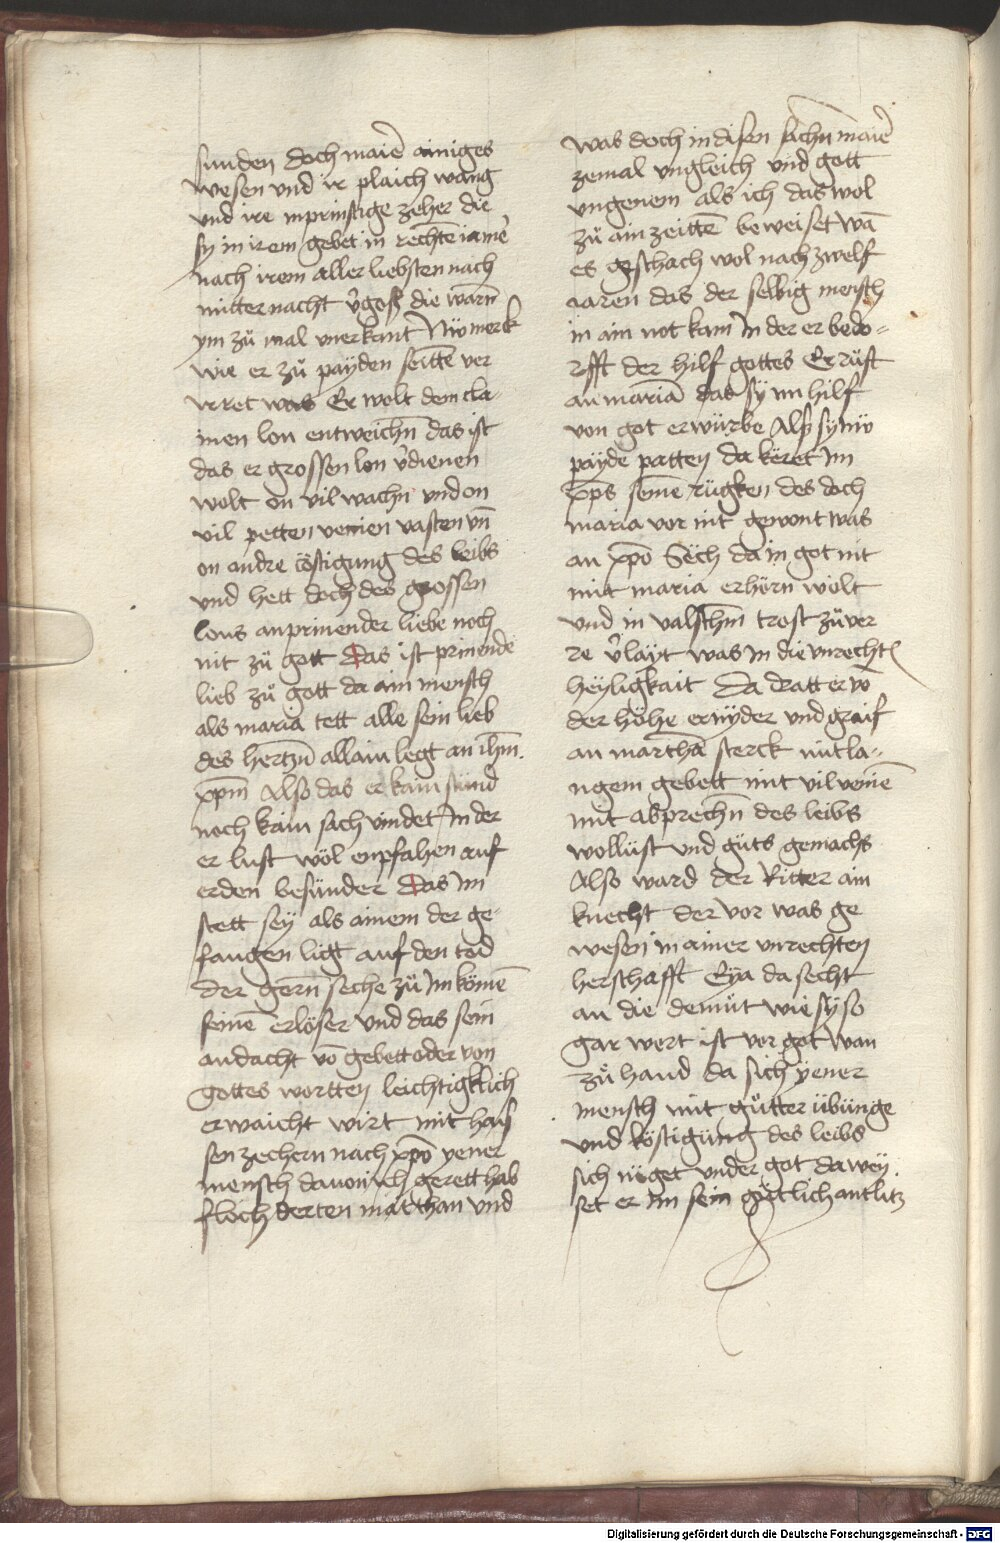 sunden doch maiē ainiges
wesen und ir plaich wang
und ire inprinstige zeher die
sy in irem gebet in rechtē iamē
nach irem aller liebsten nach
mitter nacht v̓goß die warn̄
ym zů mal vnerkant Nu merck
wie er zů payden seittē ver
irret was Er wolt dem cla-
inen lon entweichn̄ das ist
das er grossen lon v̓dienen
wolt on vil wachn̄ und on
vil petten venien vasten vn̄
on andre cöstigung des leibs
und hett doch des grossen
lons anprinender liebe noch
nit zů gott Das ist prinende
lieb zů gott da ain mensch
als maria tett alle sein lieb
des hertzn̄ allain legt an ih̄m.
xp̄m Also das er kain stund
noch kain sach vindet In der
er lust wöl enpfahen auf
erden besunder Das Im
stett sey als ainem der ge-
fangen ligt auf den tod
der gern̄ seche zů Im kömē
seinē erlöser und das sein
andacht vō gebett oder von
gottes wortten leichtigklich
erwaicht wirt mit hais
sen zechern nach xp̄o yener
mensch dauon ich gerett hab
floch derten marthan und
was doch in disen sachn̄ maiē
zemal ungleich und gott
ungenem als ich das wol
zů ain zeittē beweiset wā
es geschach wol nach zwelf
iaren das der selbig mensch
in ain not kam In der er bedo-
rfft der hilf gottes Er rüft
an mariā das sy im hilf
von got erwürbe Alß sy nü
payde patten da keret Im
xp̄s seinē rügken des doch
maria vor nit gewont was
an xp̄o Sech da in got nit
mit maria erhörn wolt
und in valschem̄ trost zů ver
re v̓layt was in die unrecht
heyligkait Da dratt er vō
der höhe ernyder und graif
an marthā sterck mit la-
ngem gebett mit vil veniē
mit abprechn̄ des leibs
wollust und guts gemachs
Also ward der Ritter ain
knecht der vor was ge
wesen in ainer unrechten
herschafft Eya da secht
an die demůt wie sy so
gar wert ist vor got wan
zů hand da sich yener
mensch mit gůtter übunge
und köstigung des leibs
sich niget under got da wey
set er Im sein götlich antlitz
Digitalisierung gefördert durch die Deutsche Forschungsgemeinschaft - DFG